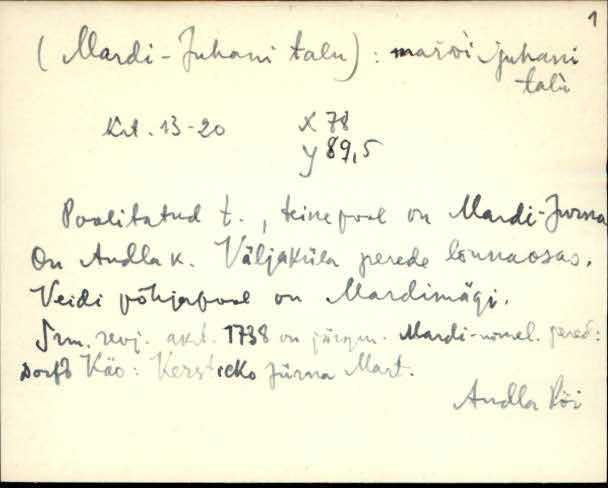 1
(Mardi-Juhani talu): marδi juhani
talu
Krt. 13-20 X 78
y 89,5
Poolitatud t., teine pool on Mardi-Jurna
On Andla k. Väljaküla perede lõunaosas.
Veidi põhjapool on Mardimägi.
Srm. revj. akt. 1738 on järgm. Mardi-nimel. pered:
Dorff Käo: Kersticko Jürna Mart.
Andla Pöi